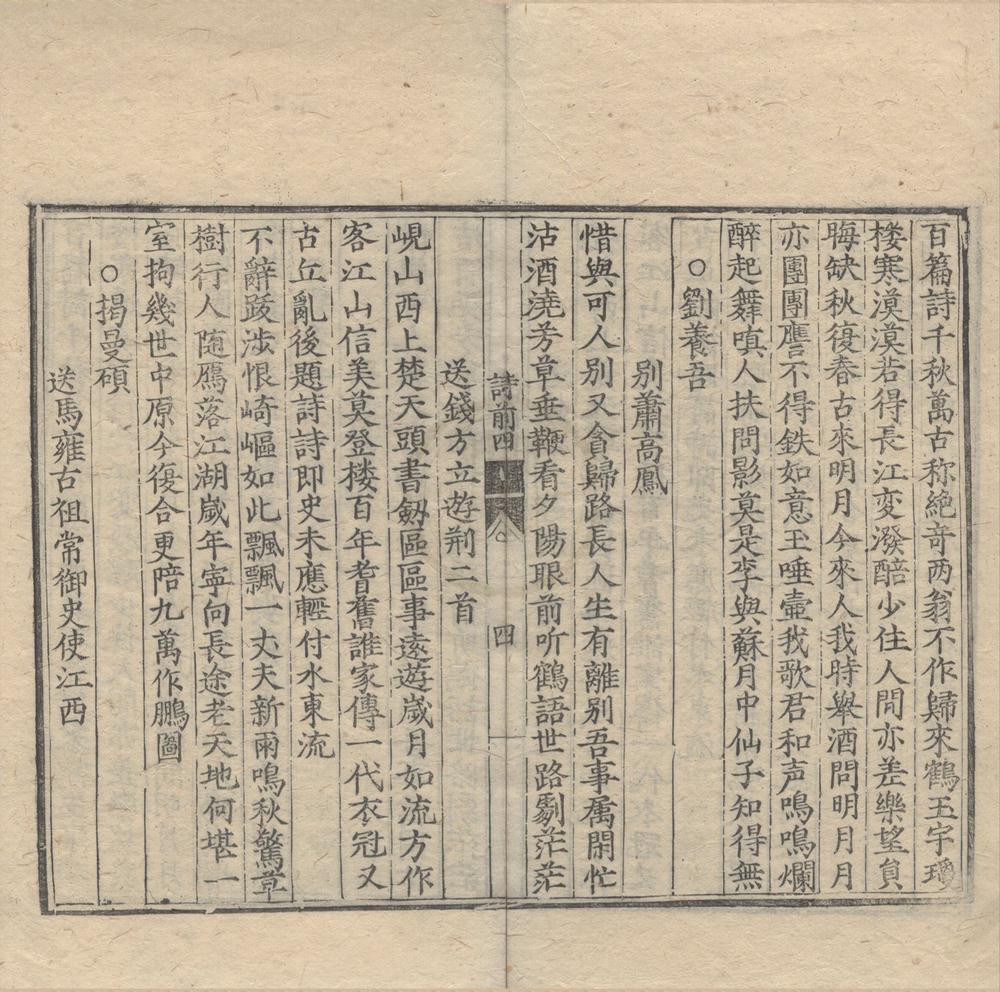 百篇詩千秋萬古称絶竒两翁不作歸來鶴玉宇瓊
楼寒漠漠若得長江変潑醅少住人間亦差樂望負
晦缺秋復春古來明月今來人我時舉酒問明月月
亦團團譍不得鉄如意玉唾壷我歌君和声嗚嗚爛
醉起舞嗔人扶問影莫是李與蘇月中仙子知得無
○劉養吾
別蕭高鳳
惜與可人別又貪歸路長人生有離别吾事属閑忙
沽酒澆芳草垂鞭看夕陽眼前听鶴語世路劇茫茫
詩前四
四
送錢方立遊荊二首
峴山西上楚天頭書劔區區事遠遊歲月如流方作
客江山信美莫登楼百年耆舊誰家傳一代衣冠又
古丘亂後題詩詩即史未應輕付水東流
不辭跋涉恨崎嶇如此飄飄一丈夫新雨鳴秋驚草
樹行人随鴈落江湖歲年寧向長途老天地何堪一
室拘幾世中原今復合更陪九萬作鵬圖
○掲曼碩
送馬雍古祖常御史使江西